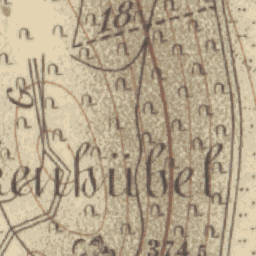 18
enhübel
374,5